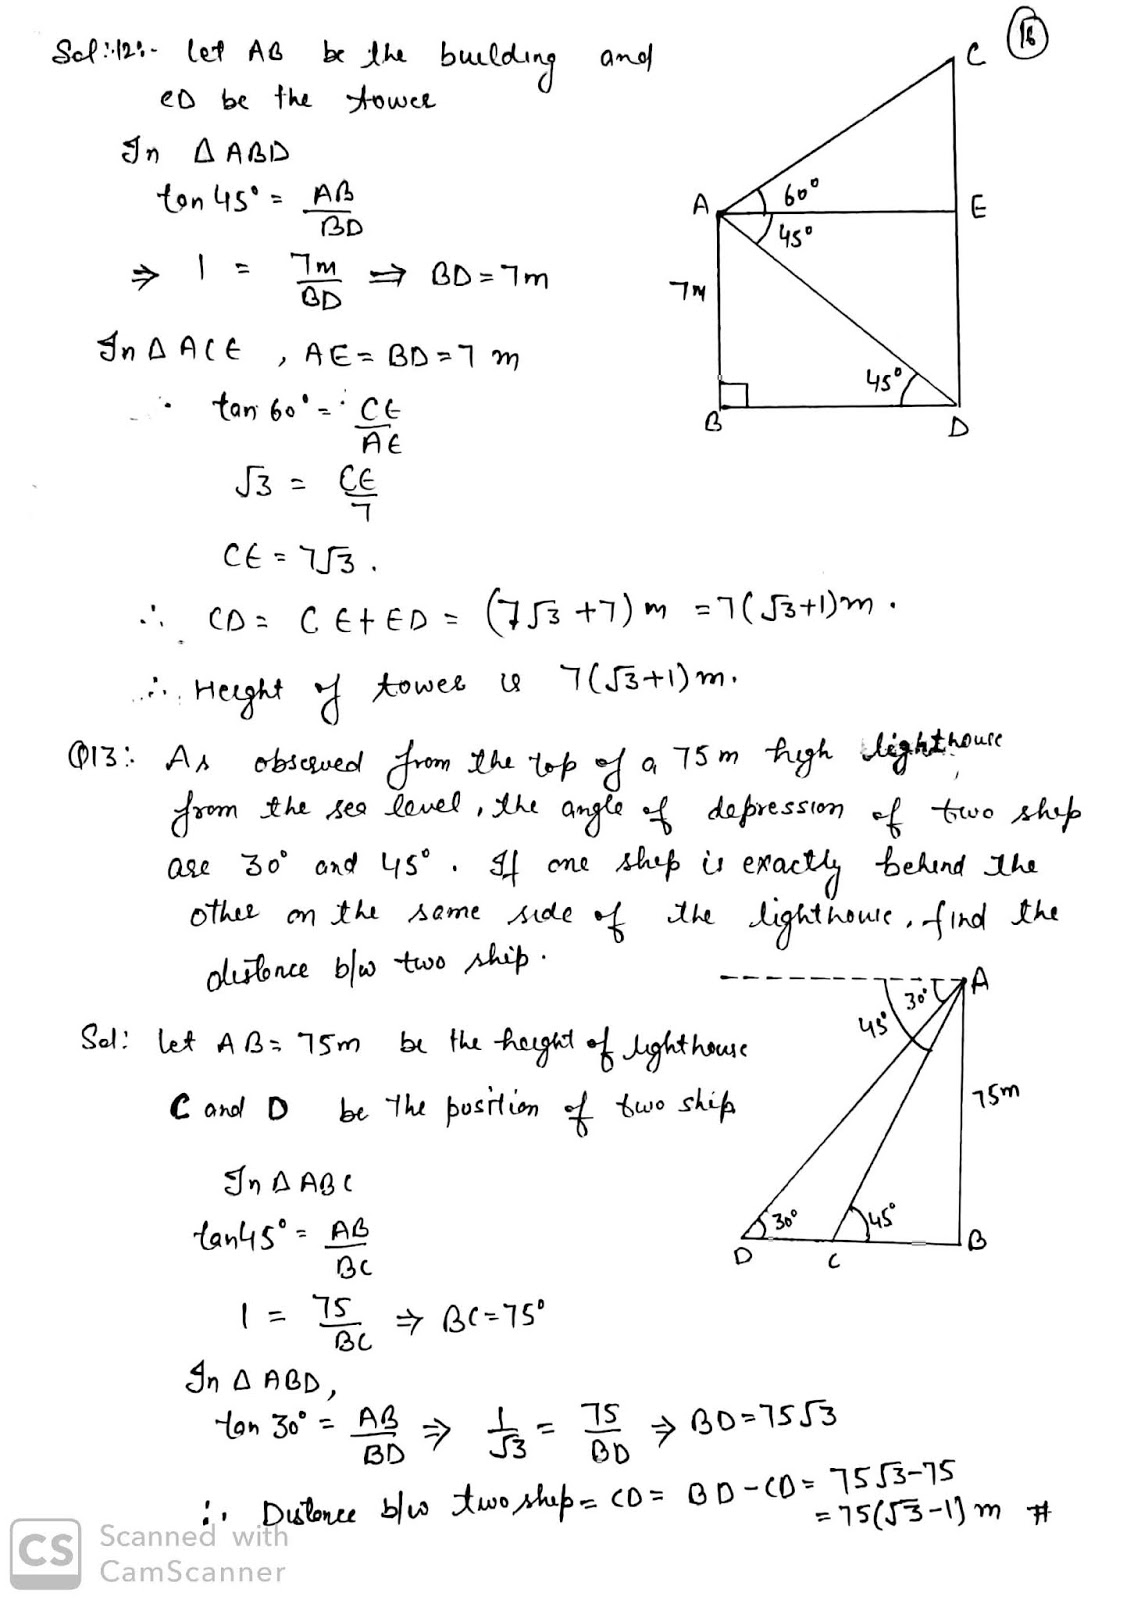 Sol:12:- let AB be the building and
CD be the tower
In Δ ABD
tan 45° = AB/BD
⇒ 1 = 7m/BD ⇒ BD = 7m
In Δ ACE , AE = BD = 7 m
∴ tan 60° = CE/AE
√3 = CE/7
CE = 7√3 .
∴ CD = CE + ED = (7√3 + 7) m = 7(√3+1)m .
∴ Height of tower is 7(√3+1) m.
16
C
A 60° E
45°
7m
45°
B D
Q13: As observed from the top of a 75 m high lighthouse
from the sea level, the angle of depression of two ship
are 30° and 45° . If one ship is exactly behind the
other on the same side of the lighthouse, find the
distance b/w two ship .
Sol: let AB = 75m be the height of lighthouse
C and D be the position of two ship
In Δ ABC
tan45° = AB/BC
1 = 75/BC ⇒ BC = 75°
In Δ ABD,
tan 30° = AB/BD ⇒ 1/√3 = 75/BD ⇒ BD = 75√3
∴ Distance b/w two ship = CD = BD - CD = 75√3-75
= 75(√3-1) m #
30° A
45°
75m
30° 45°
D C B
CS Scanned with
CamScanner